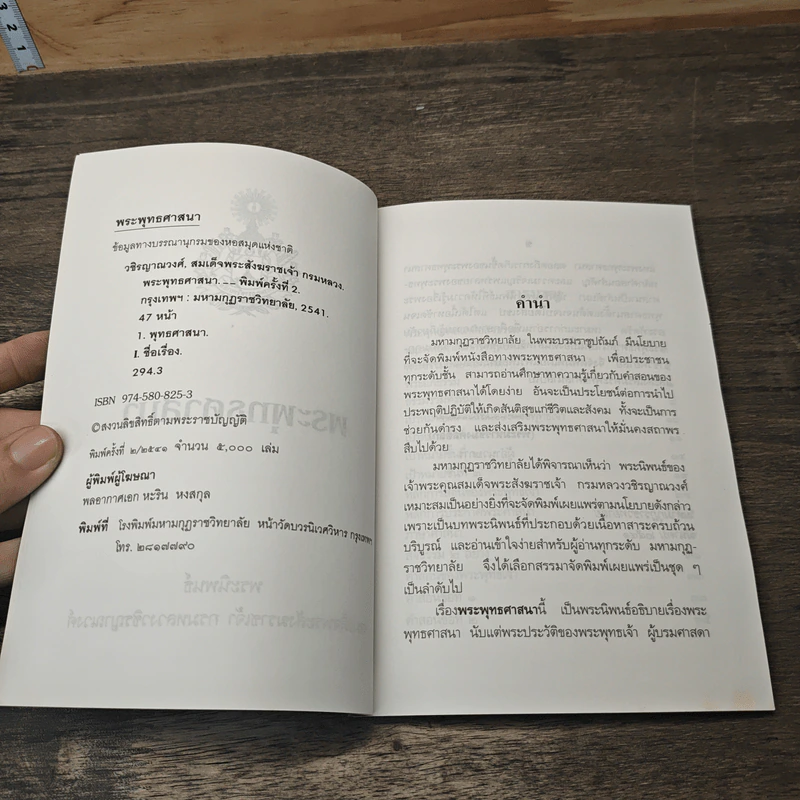 3 2 1
พระพุทธศาสนา
ข้อมูลทางบรรณานุกรมของหอสมุดแห่งชาติ
วชิรญาณวงศ์, สมเด็จพระสังฆราชเจ้า กรมหลวง.
พระพุทธศาสนา. -- พิมพ์ครั้งที่ 2.
กรุงเทพฯ : มหามกุฏราชวิทยาลัย, 2541.
47 หน้า
1. พุทธศาสนา.
I. ชื่อเรื่อง.
294.3
ISBN 974-580-825-3
©สงวนลิขสิทธิ์ตามพระราชบัญญัติ
พิมพ์ครั้งที่ ๒/๒๕๔๑ จำนวน ๕,๐๐๐ เล่ม
ผู้พิมพ์ผู้โฆษณา
พลอากาศเอก หะริน หงสกุล
พิมพ์ที่ โรงพิมพ์มหามกุฏราชวิทยาลัย หน้าวัดบวรนิเวศวิหาร กรุงเทพฯ
โทร. ๒๘๑๗๗๙๐
คำนำ
มหามกุฏราชวิทยาลัย ในพระบรมราชูปถัมภ์ มีนโยบาย
ที่จะจัดพิมพ์หนังสือทางพระพุทธศาสนา เพื่อประชาชน
ทุกระดับชั้น สามารถอ่านศึกษาหาความรู้เกี่ยวกับคำสอนของ
พระพุทธศาสนาได้โดยง่าย อันจะเป็นประโยชน์ต่อการนำไป
ประพฤติปฏิบัติให้เกิดสันติสุขแก่ชีวิตและสังคม ทั้งจะเป็นการ
ช่วยกันดำรง และส่งเสริมพระพุทธศาสนาให้มั่นคงสถาพร
สืบไปด้วย
มหามกุฏราชวิทยาลัยได้พิจารณาเห็นว่า พระนิพนธ์ของ
เจ้าพระคุณสมเด็จพระสังฆราชเจ้า กรมหลวงวชิรญาณวงศ์
เหมาะสมเป็นอย่างยิ่งที่จะจัดพิมพ์เผยแพร่ตามนโยบายดังกล่าว
เพราะเป็นบทพระนิพนธ์ที่ประกอบด้วยเนื้อหาสาระครบถ้วน
บริบูรณ์ และอ่านเข้าใจง่ายสำหรับผู้อ่านทุกระดับ มหามกุฏ-
ราชวิทยาลัย จึงได้เลือกสรรมาจัดพิมพ์เผยแพร่เป็นชุด ๆ
เป็นลำดับไป
เรื่องพระพุทธศาสนานี้ เป็นพระนิพนธ์อธิบายเรื่องพระ
พุทธศาสนา นับแต่พระประวัติของพระพุทธเจ้า ผู้บรมศาสดา